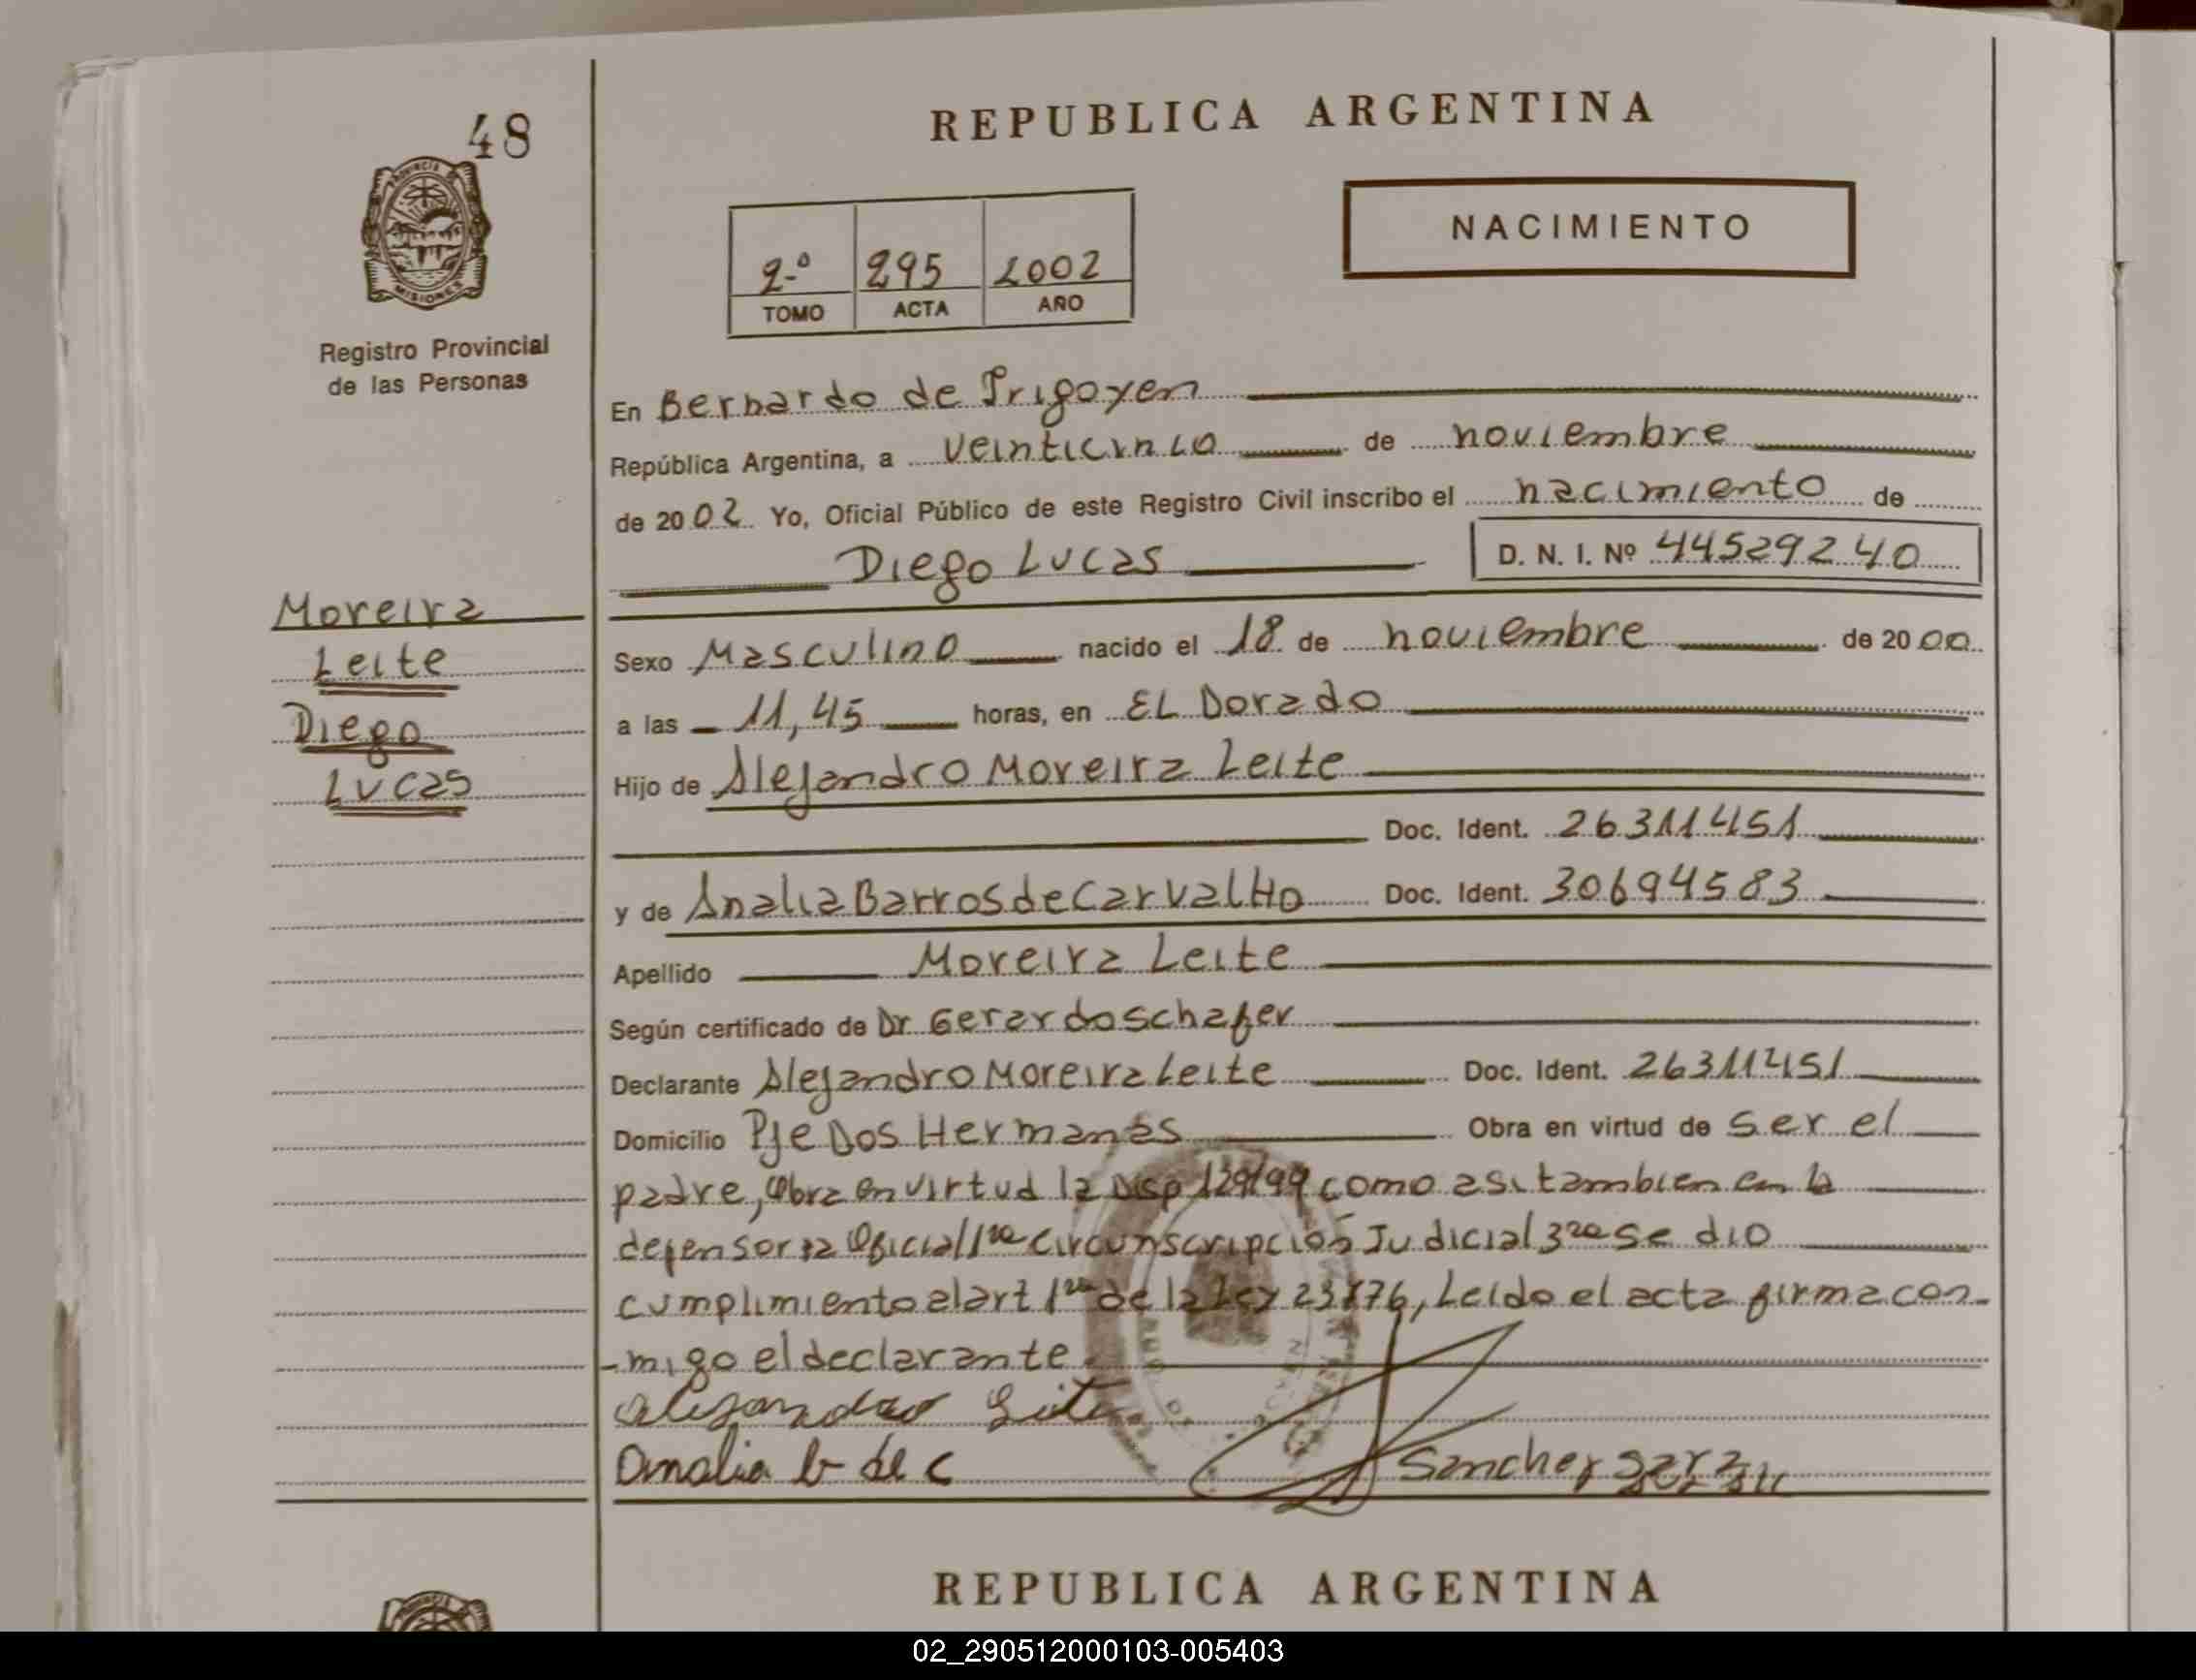 48
REPUBLICA ARGENTINA
PROVINCIA DE
MISIONES
Registro Provincial
de las Personas
2º 295 2002
TOMO ACTA AÑO
NACIMIENTO
En Bernardo de Irigoyen
República Argentina, a veinticinco de noviembre
de 2002 Yo, Oficial Público de este Registro Civil inscribo el nacimiento de
Diego Lucas D. N. I. Nº 44529240
Moreira
Leite
Diego
Lucas
Sexo Masculino nacido el 18 de noviembre de 2000
a las 11,45 horas, en EL Dorado
Hijo de Alejandro Moreira Leite
Doc. Ident. 26311451
y de Analia Barros de CarvalHo Doc. Ident. 30694583
Apellido Moreira Leite
Según certificado de Dr Gerardo Schafer
Declarante Alejandro Moreira Leite Doc. Ident. 26311451
Domicilio Pje Dos Hermanas Obra en virtud de ser el
padre, Obra en virtud la Disp 129/99 como asi tambien en la
defensoria Oficial 1ra circunscripcion Judicial 3ra se dio
cumplimiento al art 1ro de la Ley 23776, Leido el acta firma con-
-migo el declarante
alejandro Leite
Analia b de c
REPUBLICA ARGENTINA
02_290512000103-005403